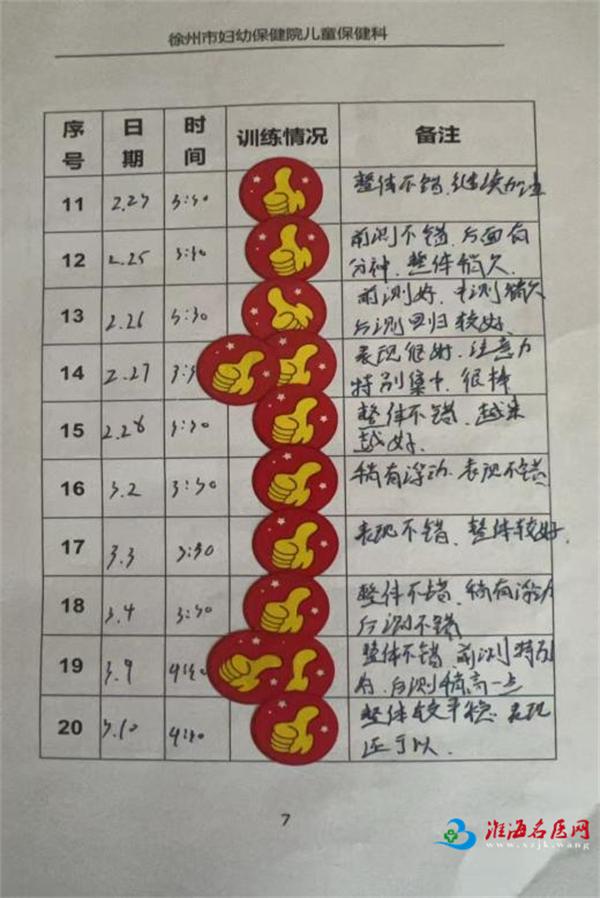 徐州市妇幼保健院儿童保健科
序号 日期 时间 训练情况 备注
11 2.24 3:30 整体不错,继续加油
12 2.25 3:30 前测不错,后面有
分神,整体稍欠.
13 2.26 3:30 前测好,中测稍欠
后测回归较好.
14 2.27 表现很好,注意力
特别集中,很棒
15 2.28 3:30 整体不错,越来
越好.
16 3.2 3:30 稍有浮动.表现不错
17 3.3 3:30 表现不错、整体较好.
18 3.4 3:30 整体不错,稍有浮动
后测不错
19 3.9 整体不错,前测特别
好,后测稍高一点
20 3.10 4:40 整体较平稳,表现
还可以.
7
淮海名医网
www.xzjk.wang